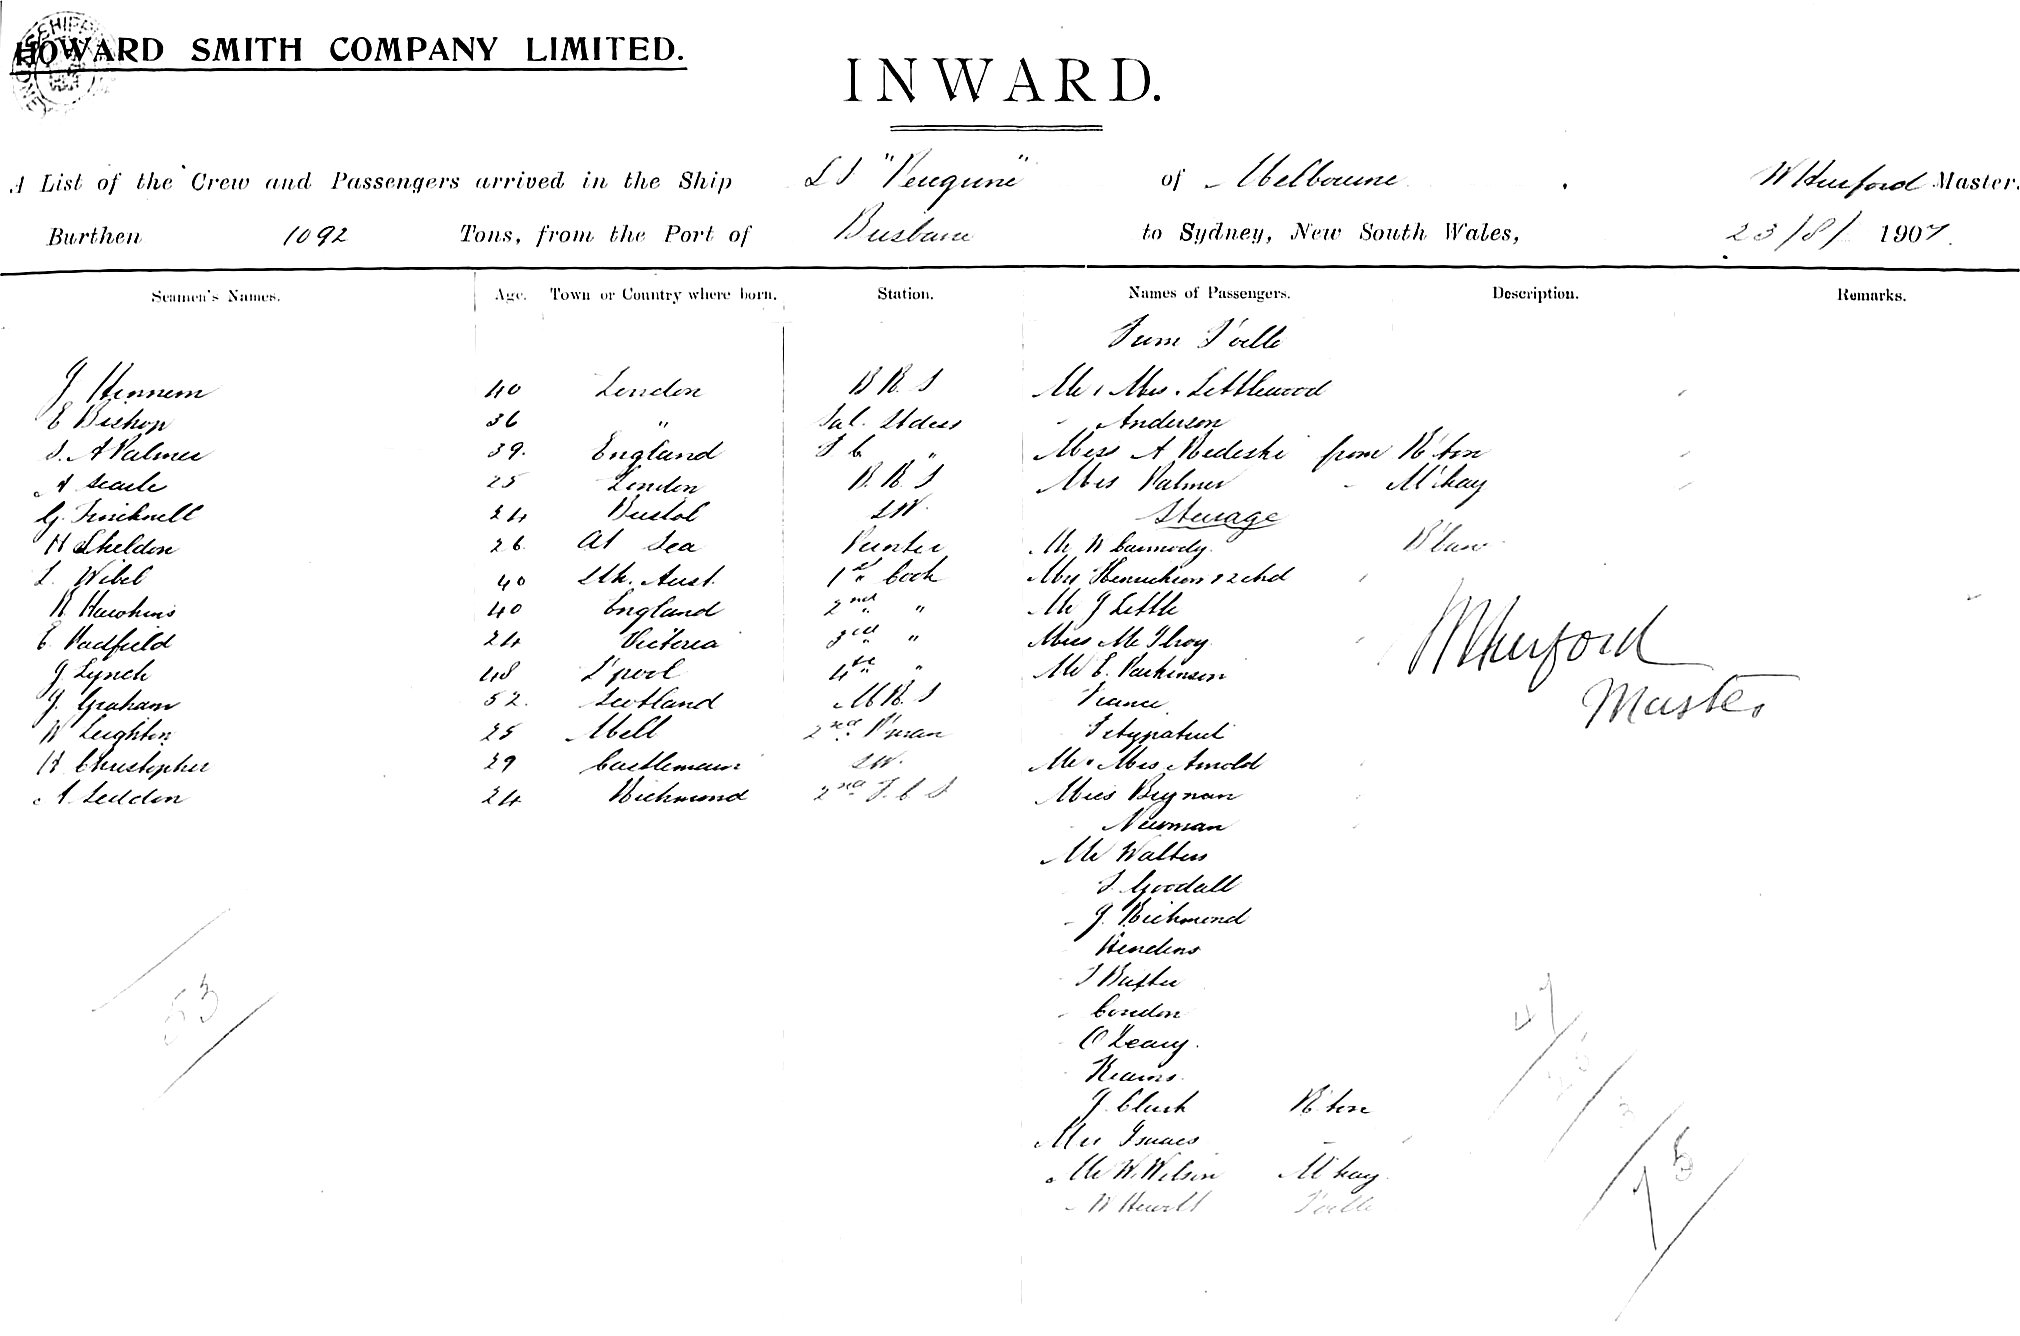 HOWARD SMITH COMPANY LIMITED.
INWARD.
A List of the Crew and Passengers arrived in the Ship SS "Peregrine" of Melbourne W Hurford Master.
Burthen 1092 Tons, from the Port of Brisbane to Sydney, New South Wales, 23/8/ 1907.
Seamen's Names. Age. Town or Country where born. Station. Names of Passengers. Description. Remarks.
From T'ville
J 40 London B R S Mr & Mrs. Littlewood
E Bishop 36 " Sal. Stdess Anderson
S. A Palmer 39. England S C " Miss A from R'ton
A Searle 25 London B. R S Mrs Palmer - M'kay
G. Tricknell 24 Bristol SW. Steerage
H Sheldon 26 At Sea Printer Mr W Carmody B'wen
L. Wibel 40 Sth. Aust. 1st Cook Mrs Henrickson & 2 chd
R Hawkins 40 England 2nd " Mr J Little
E. Padfield 24 Victoria 3rd " Miss McIlroy
J Lynch 48 L'pool 4th " Mr E. Parkinson
J. Graham 52. Scotland M R. S
W Leighton 25 Melb 2nd P'man Fitzpatrick
H Christopher 29 Castlemaine SW. Mr & Mrs Arnold
A. Seddon 24 Richmond 2nd S. C S Miss Brynan
Newman
Mr Walters
S. Goodall
J. Richmond
T Baxter
Condon
O'Leary.
Kearns.
J. Clark R'ton
Mrs Isaacs -
Mr W. Wilson M'kay.
- W Hewitt T'ville
W Hurford
Master
53
47
75